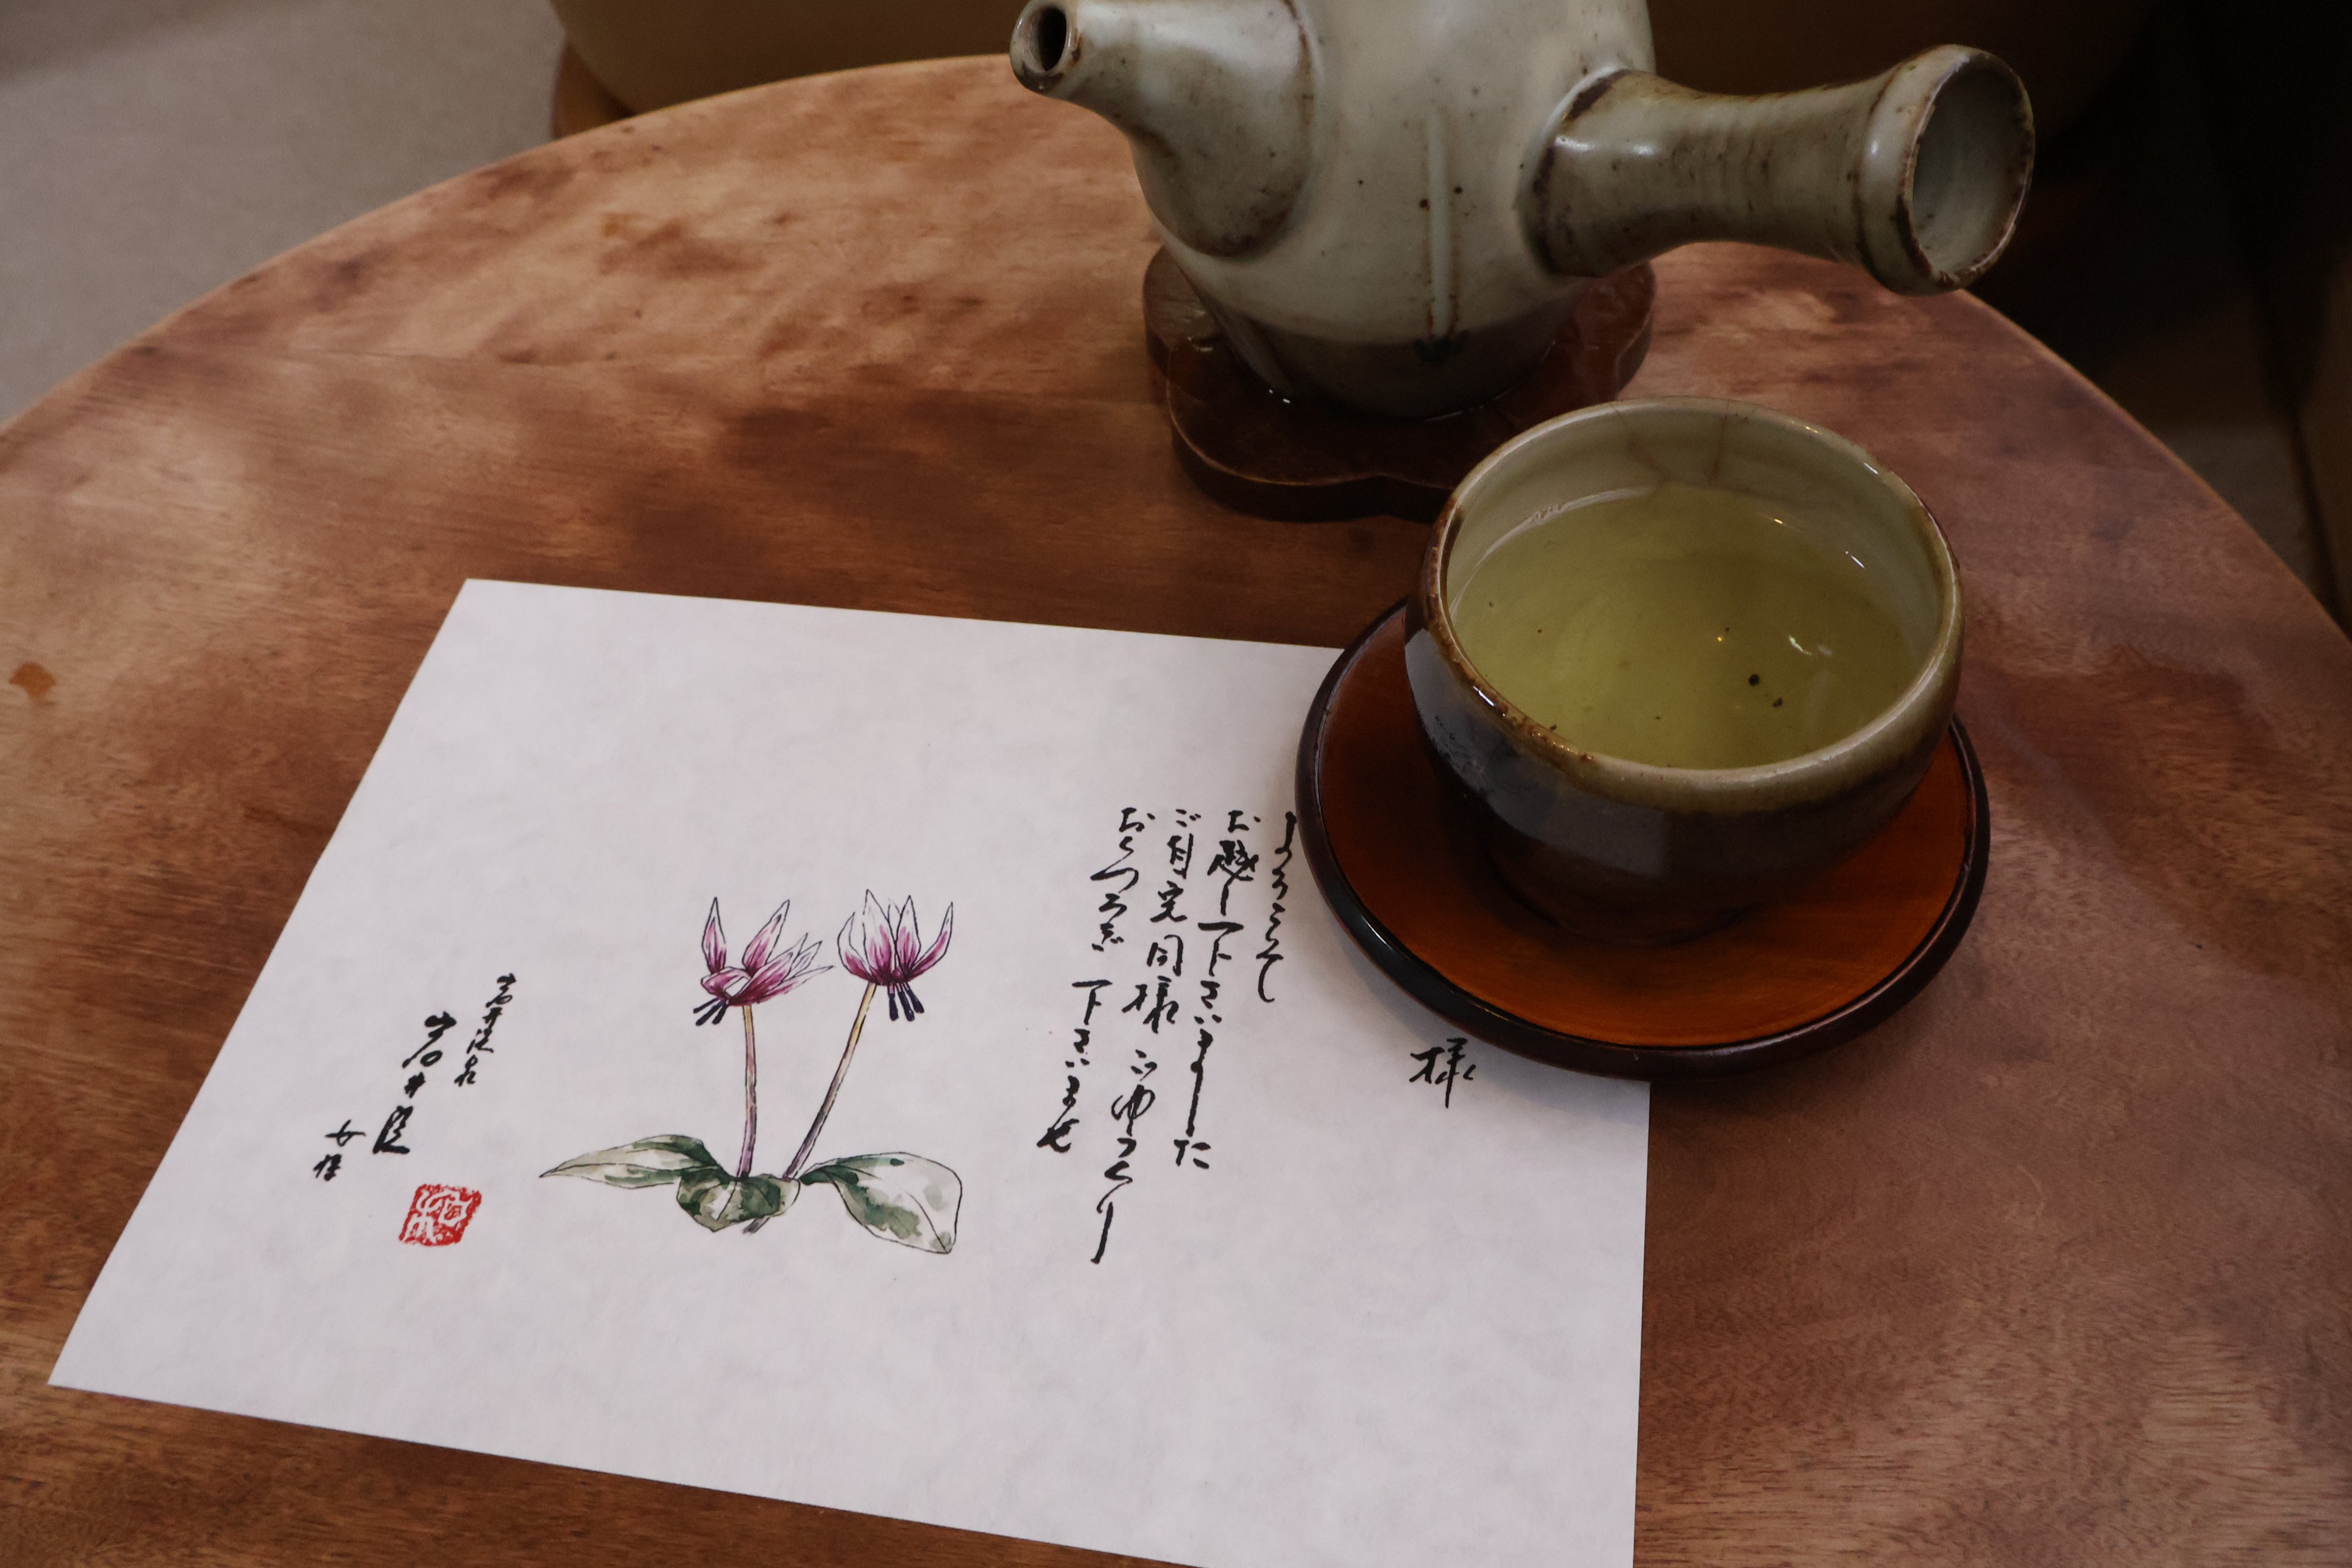 様
ようこそ
お越し下さいました
ご自宅同様ごゆっくり
おくつろぎ下さいませ
岩井温泉
岩井屋
女将